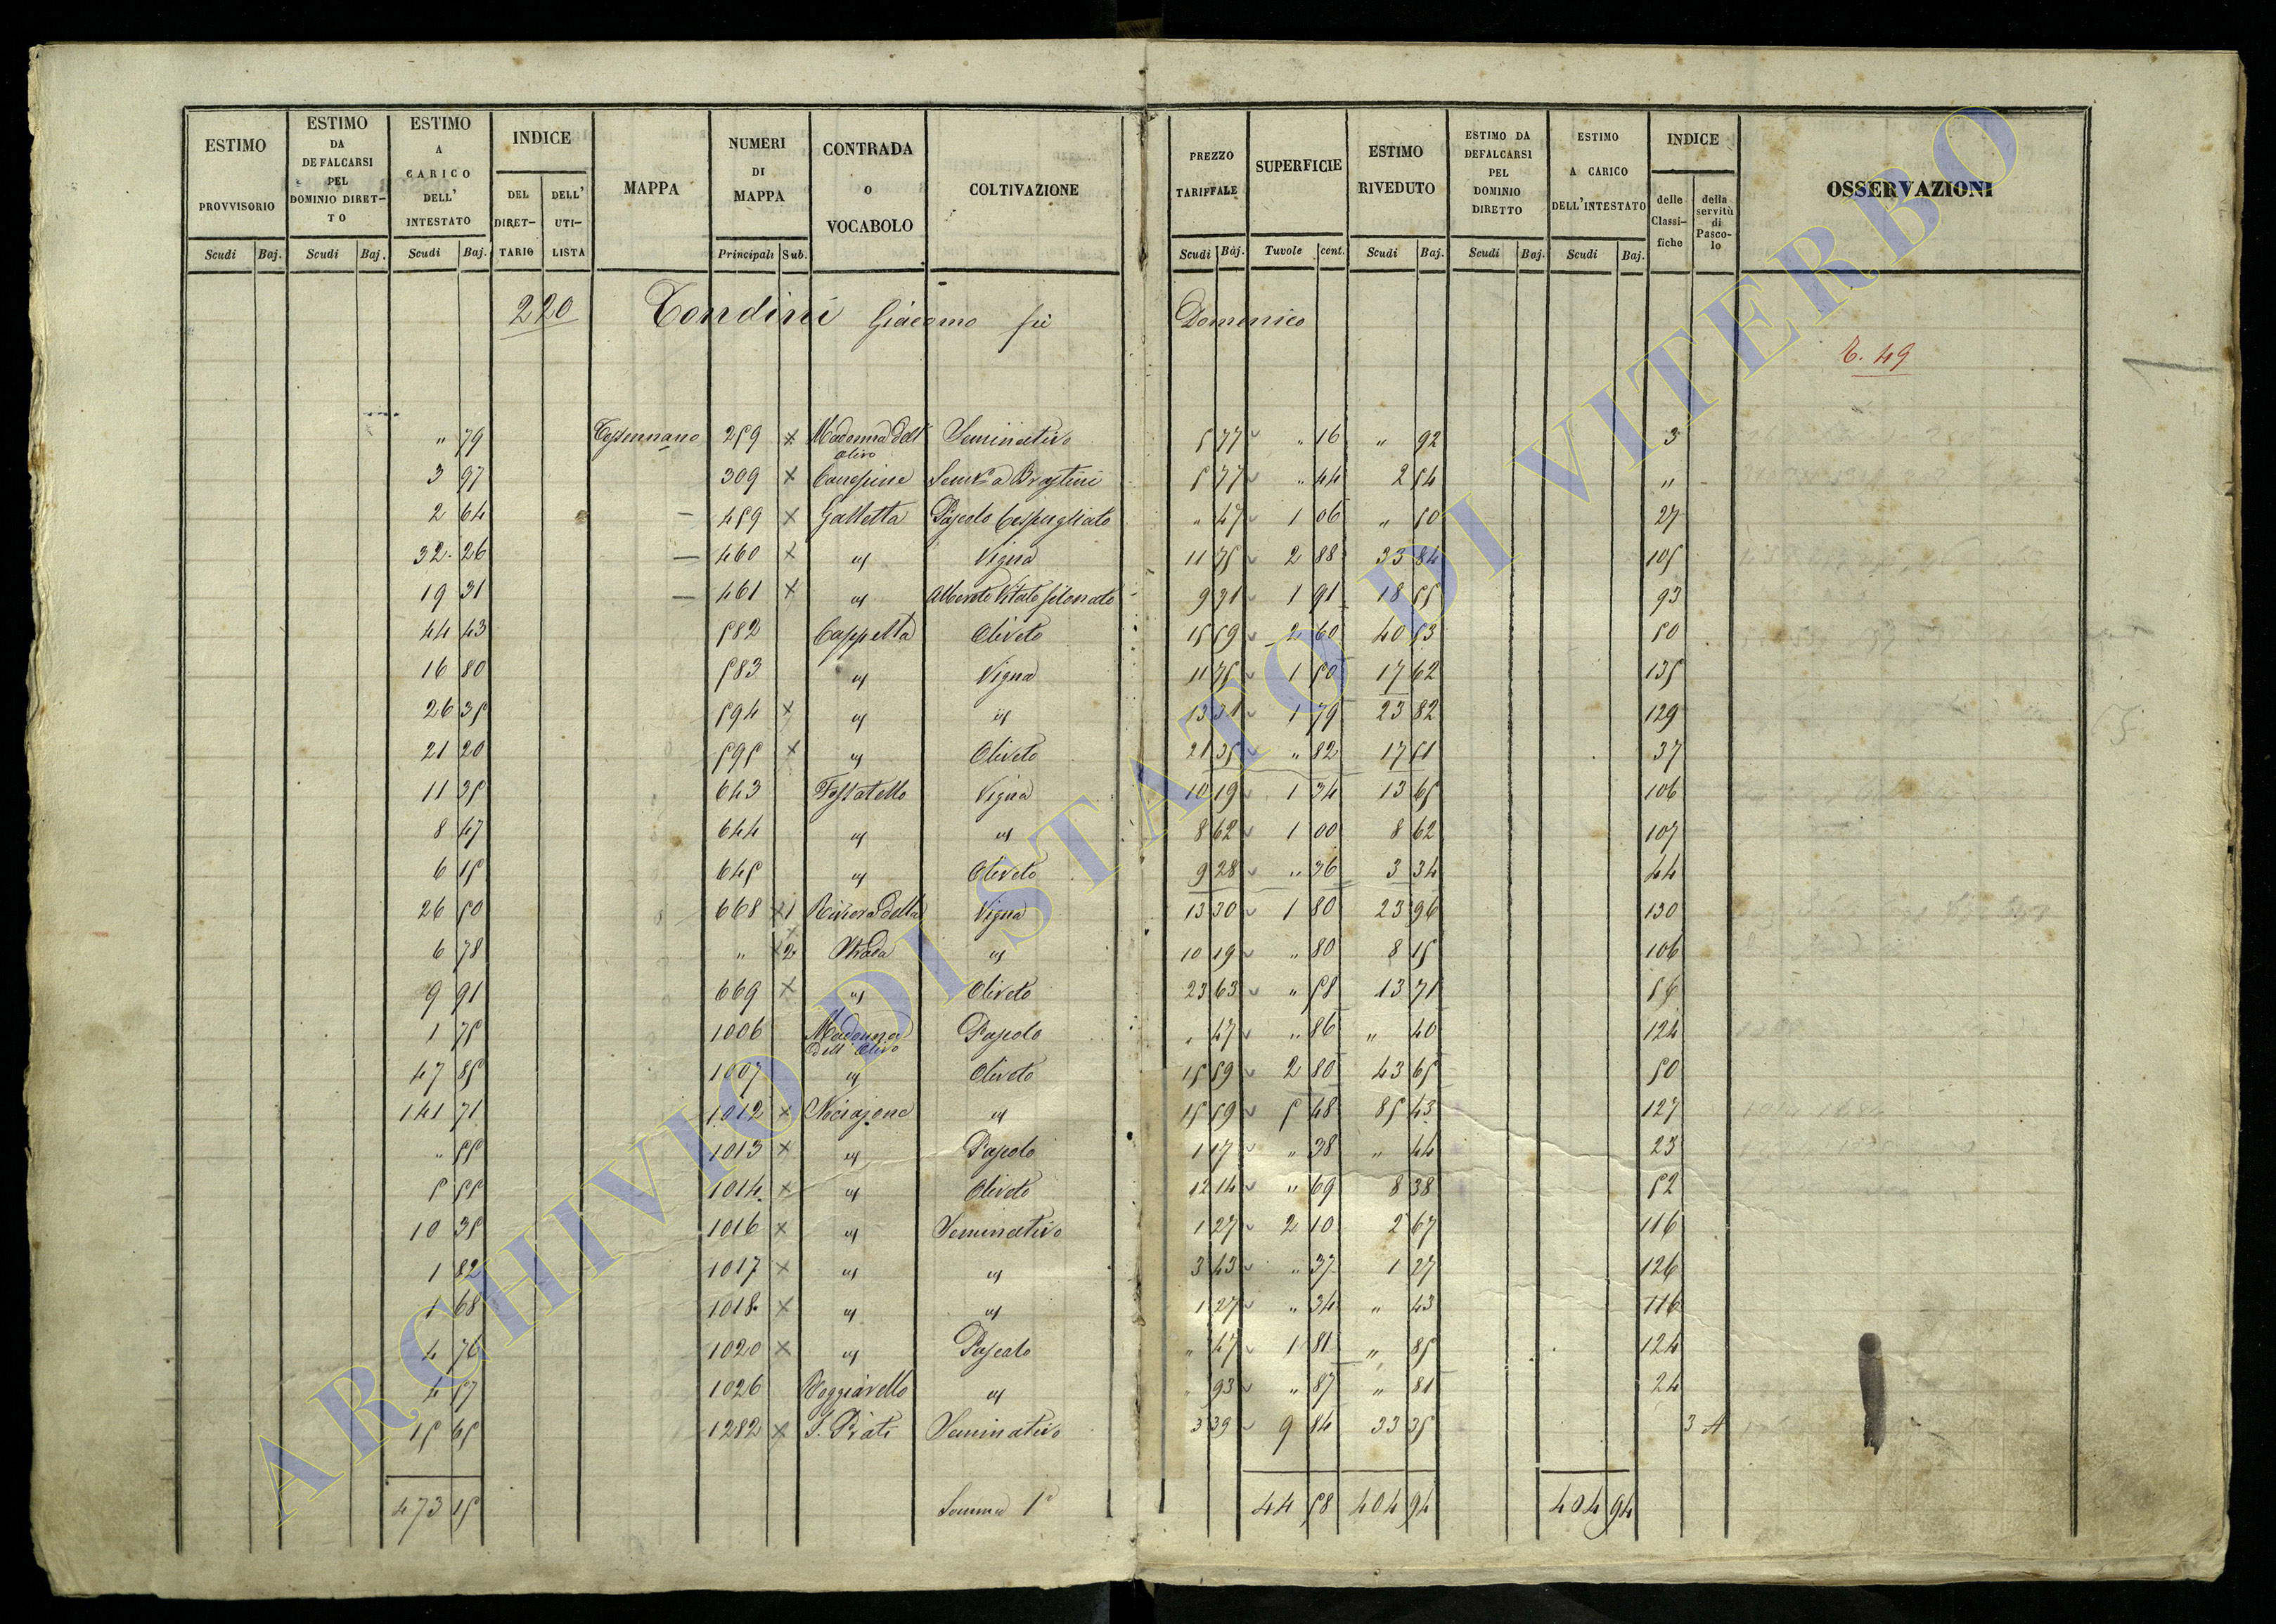 ESTIMO PROVVISORIO Scudi Baj. ESTIMO DA DEFALCARSI PEL DOMINIO DIRETTO Scudi Baj. ESTIMO A CARICO DELL' INTESTATO Scudi Baj. INDICE DEL DIRETTARIO DELL' UTILISTA MAPPA NUMERI DI MAPPA Principali Sub. CONTRADA O VOCABOLO COLTIVAZIONE PREZZO TARIFFALE Scudi Baj. SUPERFICIE Tuvole cent. ESTIMO RIVEDUTO Scudi Baj. ESTIMO DA DEFALCARSI PEL DOMINIO DIRETTO Scudi Baj. ESTIMO A CARICO DELL'INTESTATO Scudi Baj. INDICE delle Classifiche della servitù di Pascolo OSSERVAZIONI
220 Tondini Giacomo fù Domenico
49
" 79 Tessennano 259 x Madonna dell' Olivo Seminativo 5 77 " 16 " 92 3
3 97 309 x Canepine 5 77 " 44 2 54 "
2 64 459 x Galletta Pascolo Cespugliato " 47 1 06 " 50 27
32 26 460 x id Vigna 11 75 2 88 33 84 105
19 31 461 x id Alberato Vitato filonato 9 71 1 91 18 55 93
44 43 582 Cappella Oliveto 15 59 2 60 40 53 50
16 80 583 id Vigna 11 75 1 50 17 62 135
26 35 594 x id id 13 31 1 79 23 82 129
21 20 595 x id Oliveto 21 35 " 82 17 51 37
11 35 643 Fossatello Vigna 10 19 1 34 13 65 106
8 47 644 id id 8 62 1 00 8 62 107
6 15 645 id Oliveto 9 28 " 36 3 34 44
26 50 668 x 1 Riviera della Vigna 13 30 1 80 23 96 130
6 78 " x 2 Strada id 10 19 " 80 8 15 106
9 91 669 x id Oliveto 23 63 " 58 13 71
1 75 1006 Madonna dell' Olivo Pascolo " 47 " 86 " 40 124
47 85 1007 id Oliveto 15 59 2 80 43 65 50
141 71 1012 x id 15 59 5 48 85 43 127
" 55 1013 x id Pascolo 1 17 " 38 " 44 23
5 55 1014 x id Oliveto 12 14 " 69 8 38 52
10 35 1016 x id Seminativo 1 27 2 10 2 67 116
1 82 1017 x id id 3 43 " 37 1 27 126
1 68 1018 x id id 1 27 " 34 " 43 116
4 76 1020 x id Pascolo " 47 1 81 " 85 124
4 57 1026 Poggiarello id " 93 " 87 " 81 24
15 65 1282 x S. Prati Seminativo 3 39 9 84 33 35 3 A
473 15 Somma 1ª 44 58 404 94 404 94
ARCHIVIO DI STATO DI VITERBO